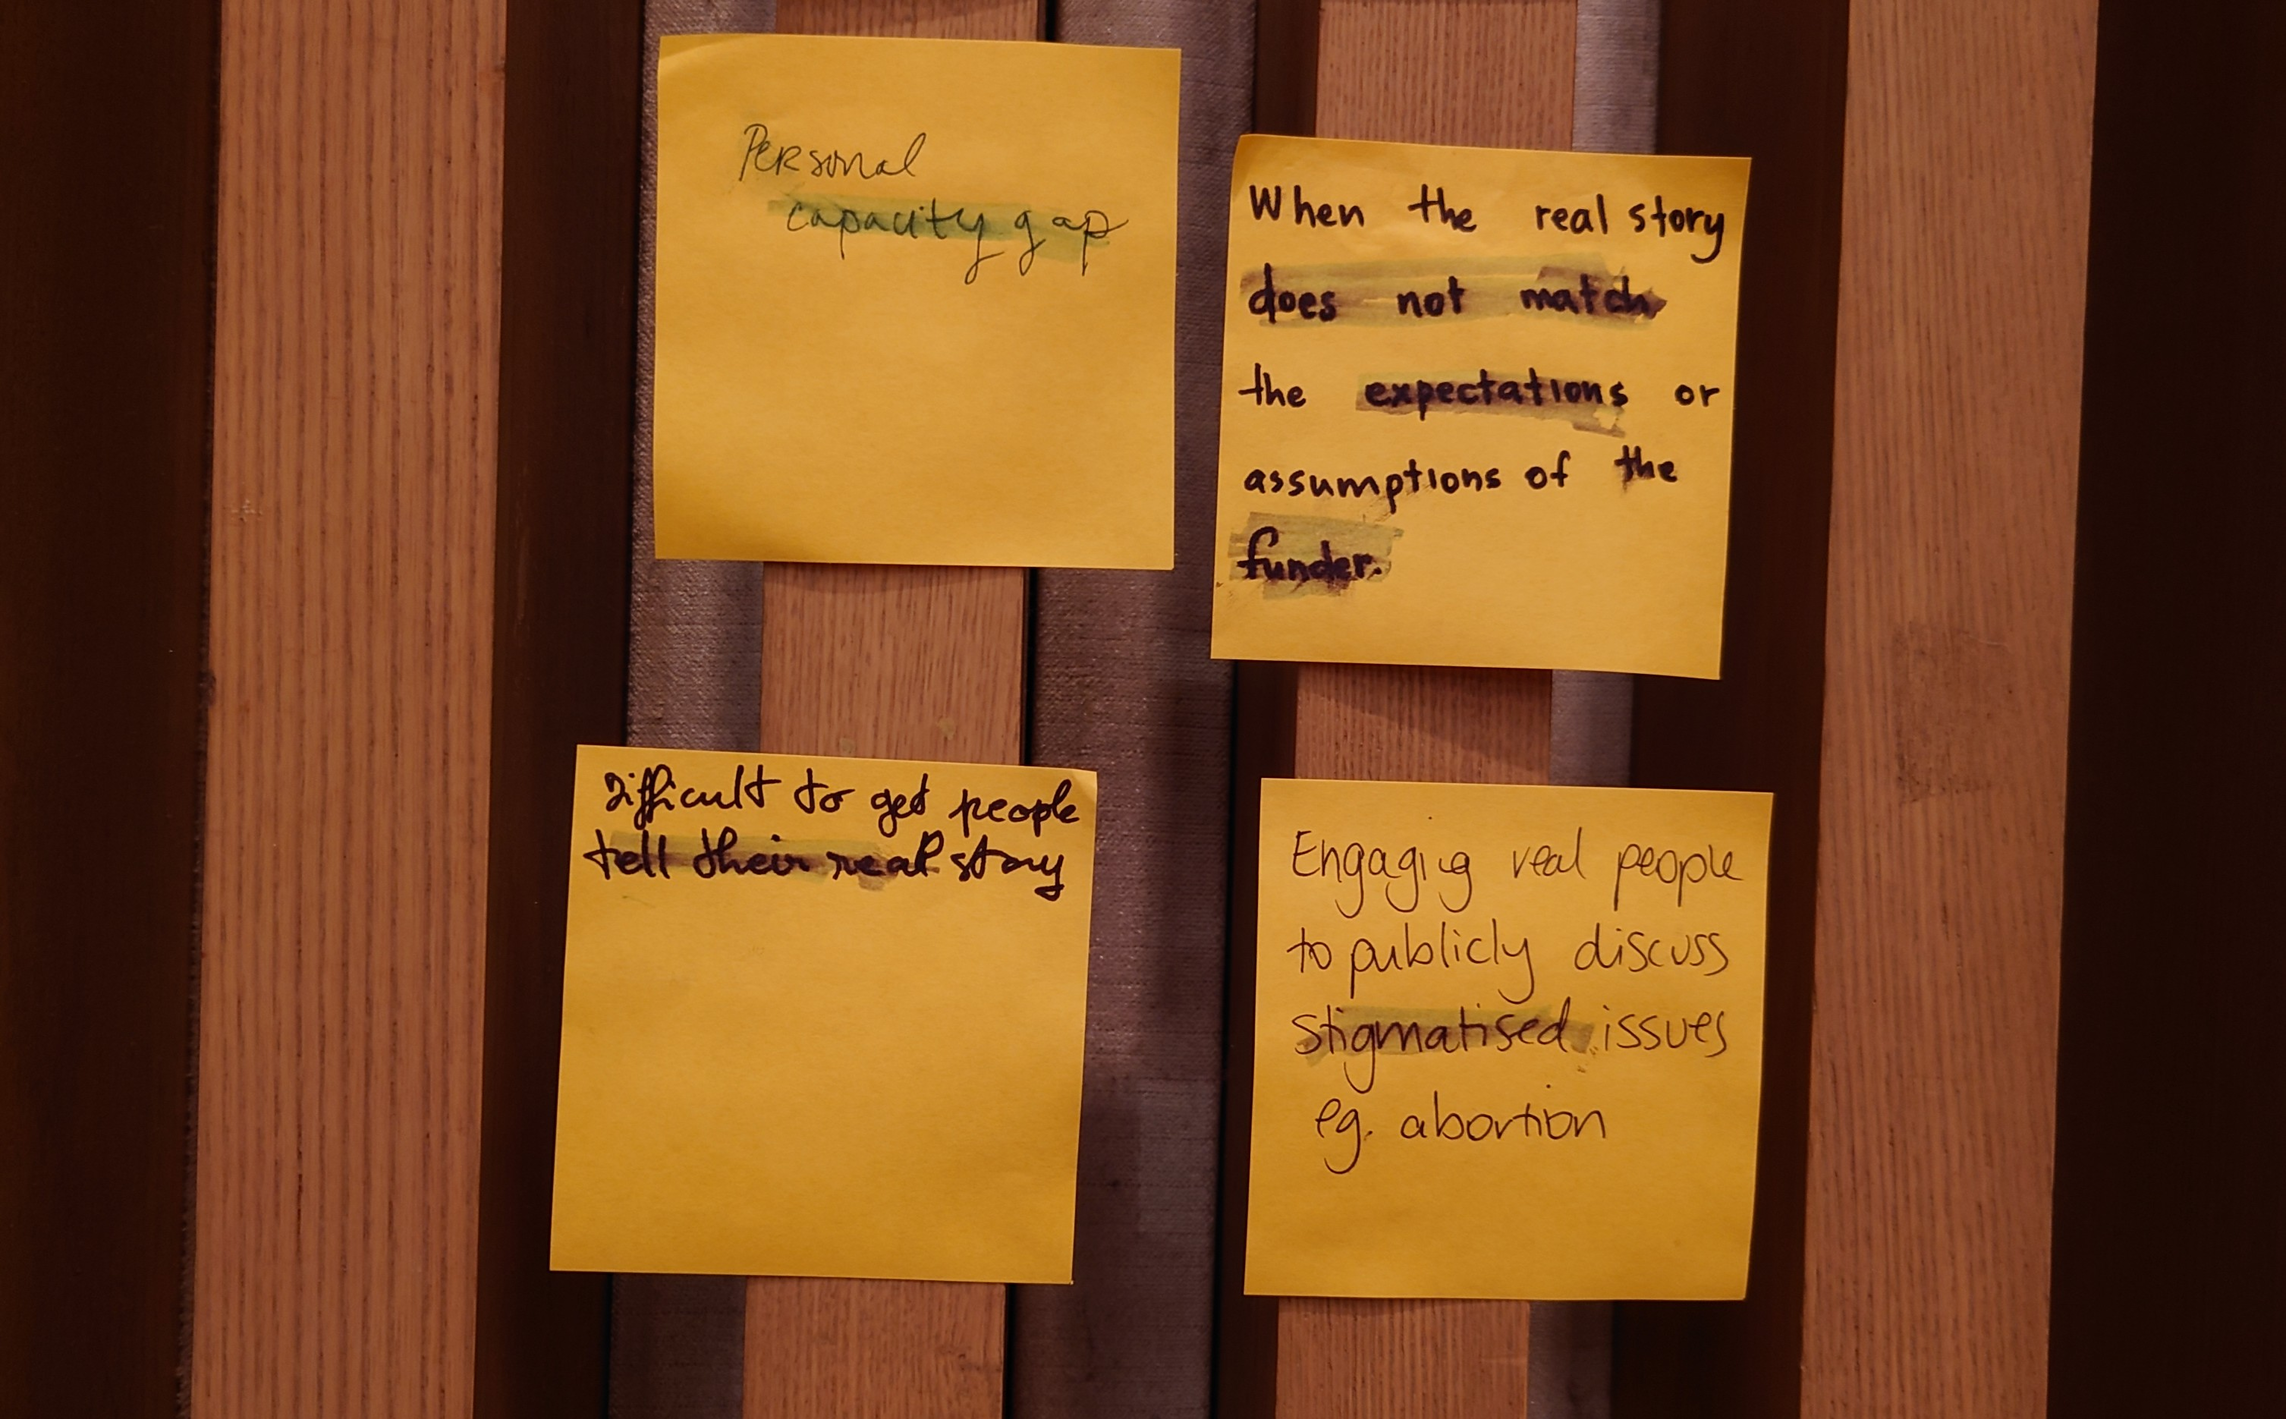 Personal
capacity gap
When the real story
does not match
the expectations or
assumptions of the
funder.
Difficult to get people
tell their real story
Engaging real people
to publicly discuss
stigmatised issues
eg. abortion